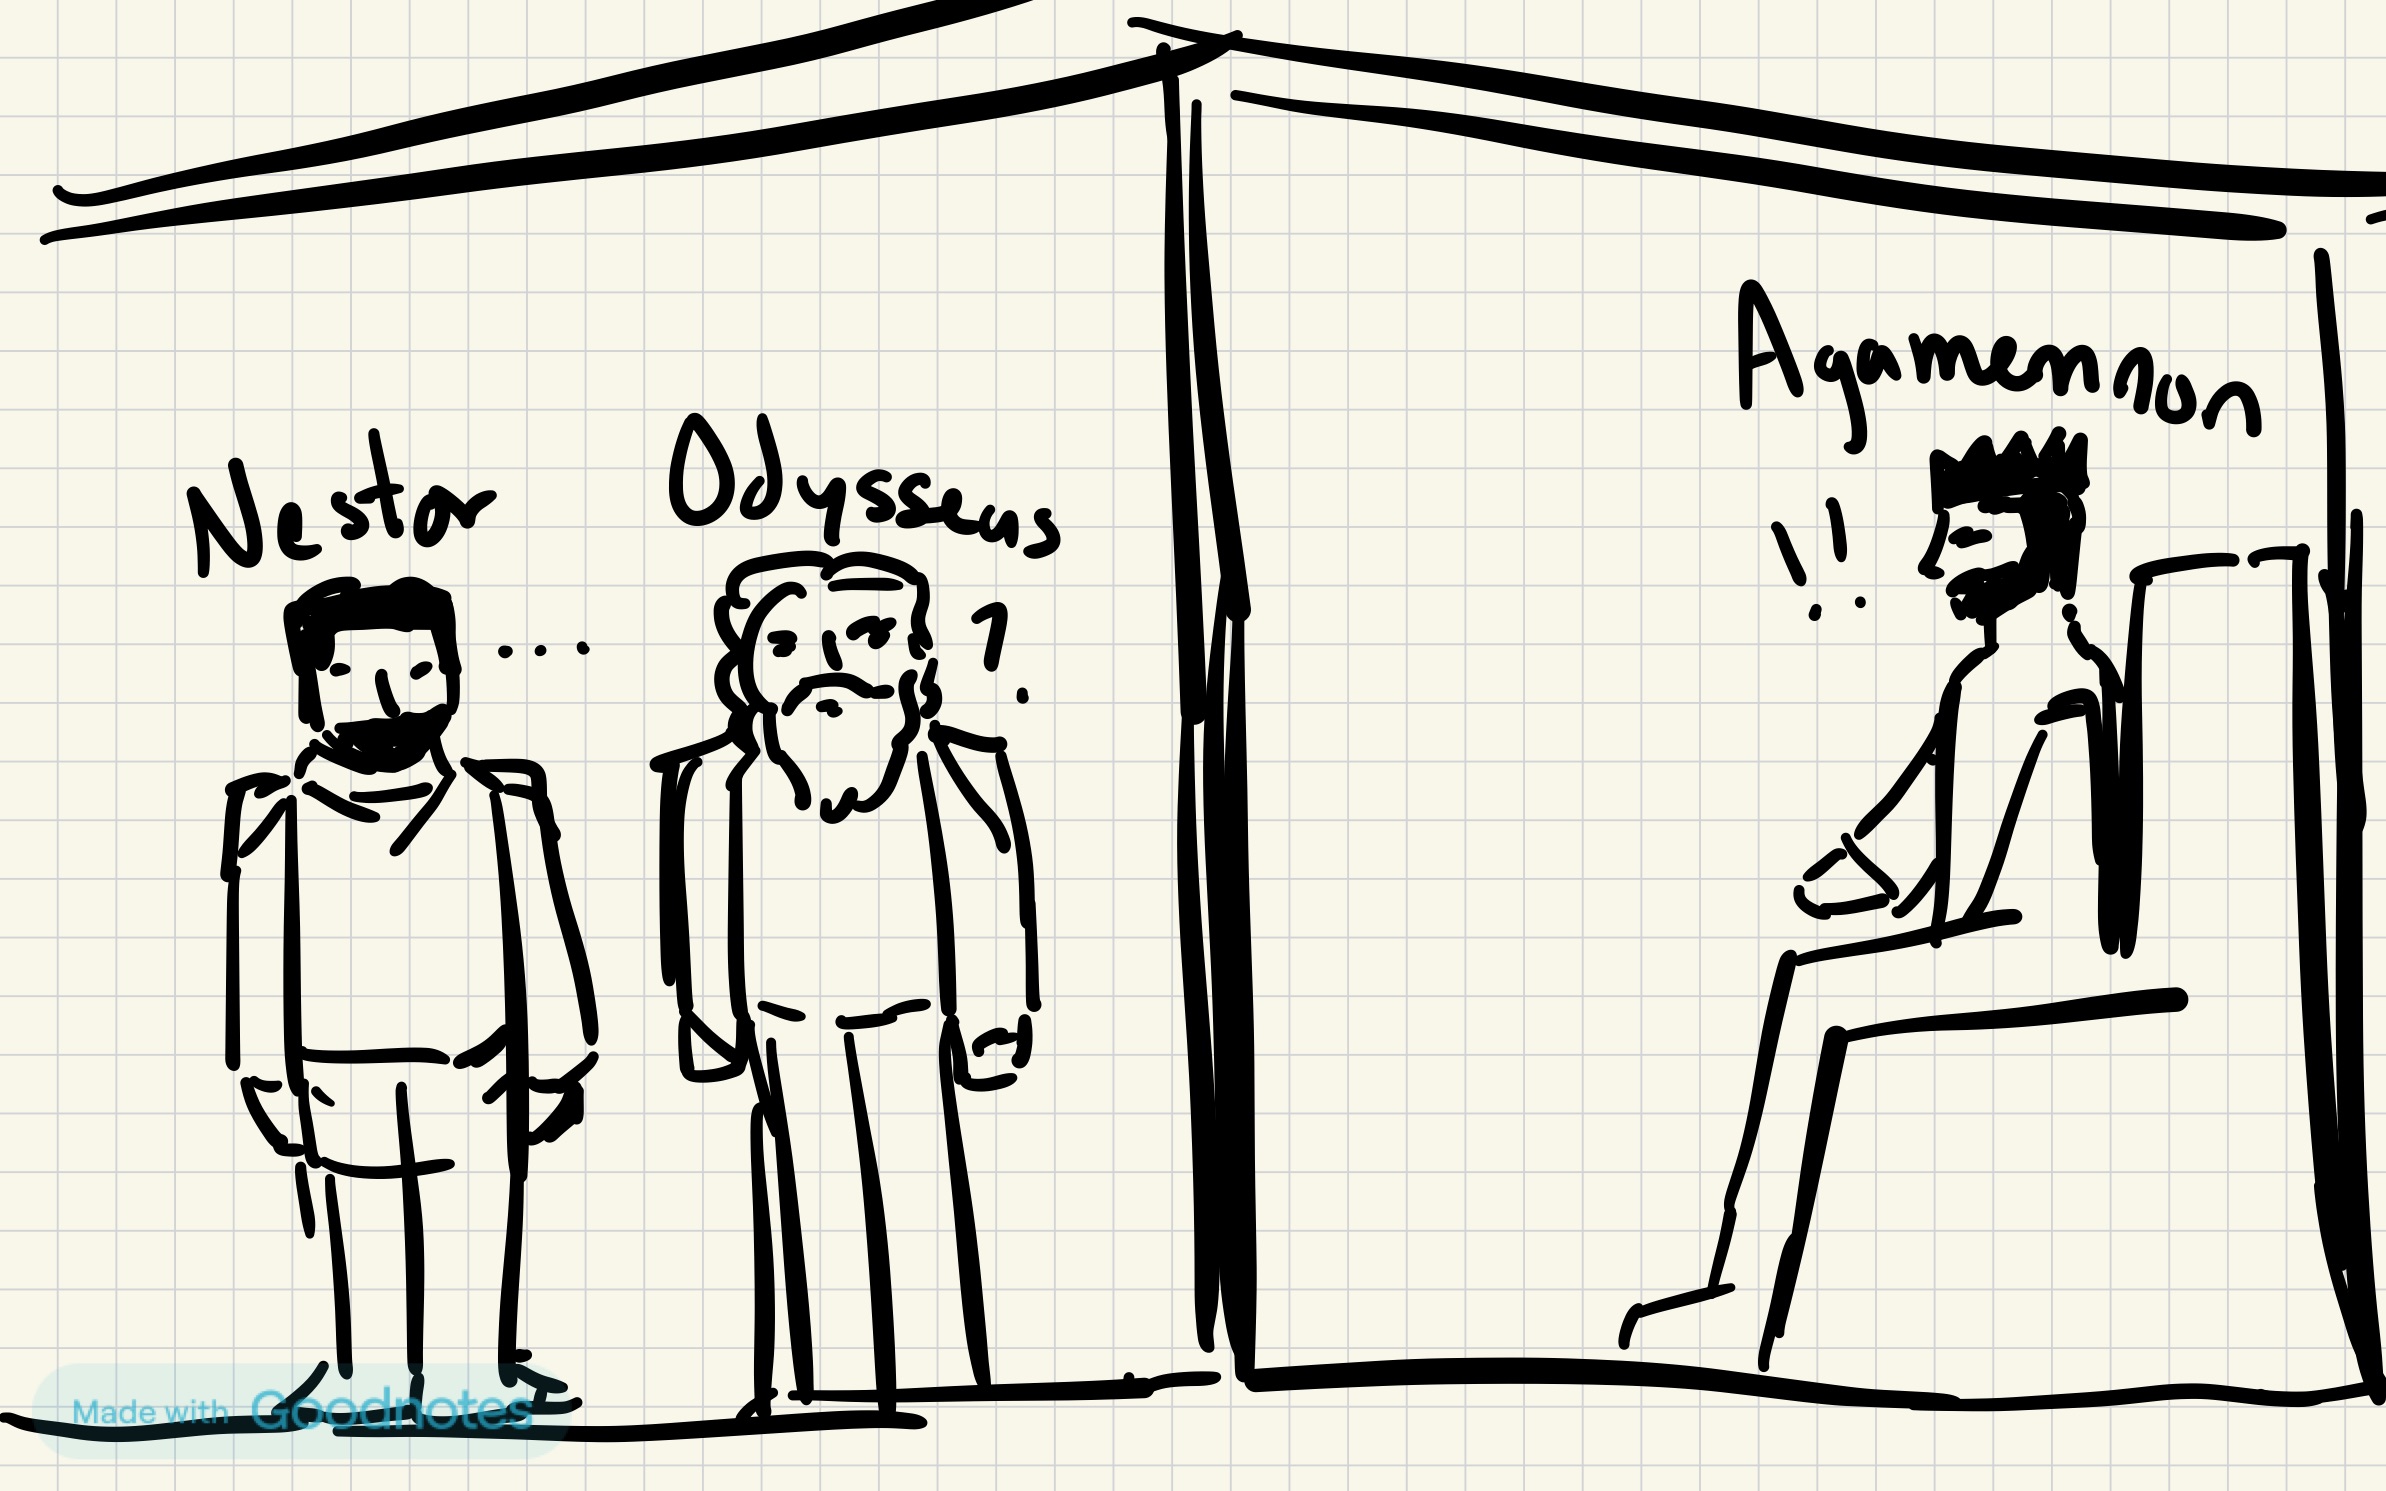 Nestor
...
Odysseus
?
Agamemnon
!!
Made with Goodnotes